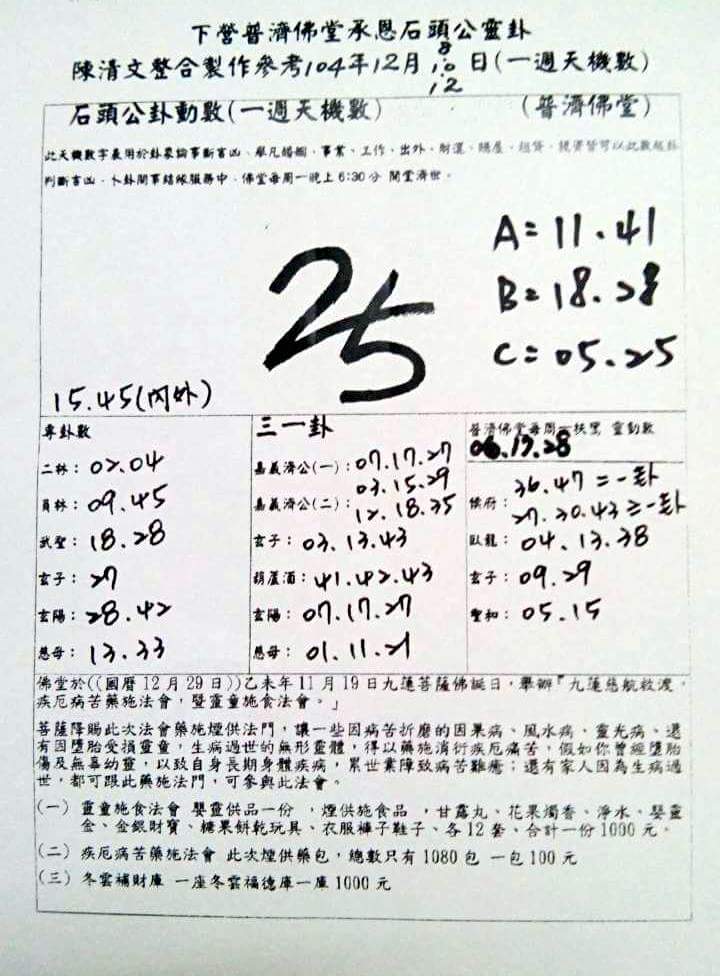 下營普濟佛堂承恩石頭公靈卦
陳清文整合製作參考104年12月8.10.12日(一週天機數)
石頭公卦動數(一週天機數) (普濟佛堂)
此天機數字義用於卦象論事斷吉凶、舉凡婚姻、事業、工作、出外、財運、購屋、租賃、投資皆可以此數起卦
判斷吉凶、卜卦問事結緣服務中、佛堂每周一晚上6:30分 開堂濟世。
25
A=11.41
B=18.28
C=05.25
15.45(內外)
專卦數
二林:02.04
員林:09.45
武聖:18.28
玄子:27
玄陽:28.42
慈母:13.33
三一卦
嘉義濟公(一):07.17.27
嘉義濟公(二):03.15.29
12.18.35
玄子:03.13.43
葫蘆酒:41.42.43
玄陽:07.17.27
慈母:01.11.21
普濟佛堂每周一扶鸞 靈動數
06.19.28
侯府:36.47=一卦
27.30.43=一卦
臥龍:04.13.38
玄子:09.29
聖和:05.15
佛堂於((國曆12月29日))乙未年11月19日九蓮菩薩佛誕日,舉辦『九蓮慈航救渡,
疾厄病苦藥施法會,暨靈童施食法會。」
菩薩降賜此次法會藥施煙供法門,讓一些因病苦折磨的因果病、風水病、靈光病、還
有因墮胎受損靈童,生病過世的無形靈體,得以藥施消衍疾厄痛苦,假如你曾經墮胎
傷及無辜幼靈,以致自身長期身體疾病,累世業障致病苦難癒;還有家人因為生病過
世,都可跟此藥施法門,可參與此法會。
(一) 靈童施食法會 嬰靈供品一份 ,煙供施食品 ,甘露丸、花果燭香、淨水、嬰靈
金、金銀財寶、糖果餅乾玩具、衣服褲子鞋子、各12套、合計一份1000元。
(二) 疾厄病苦藥施法會 此次煙供藥包,總數只有1080包 一包100元
(三) 冬雲補財庫 一座冬雲福德庫一庫1000元